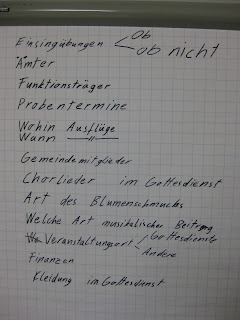 Einsingübungen < Ob
ob nicht
Ämter
Funktionsträger
Probentermine
Wohin Ausflüge
Wann —"—
Gemeindemitglieder
Chorlieder im Gottesdienst
Art des Blumenschmucks
Welche Art musikalischer Beitrag
Veranstaltungsort < Gottesdienste
Andere
Finanzen
Kleidung im Gottesdienst